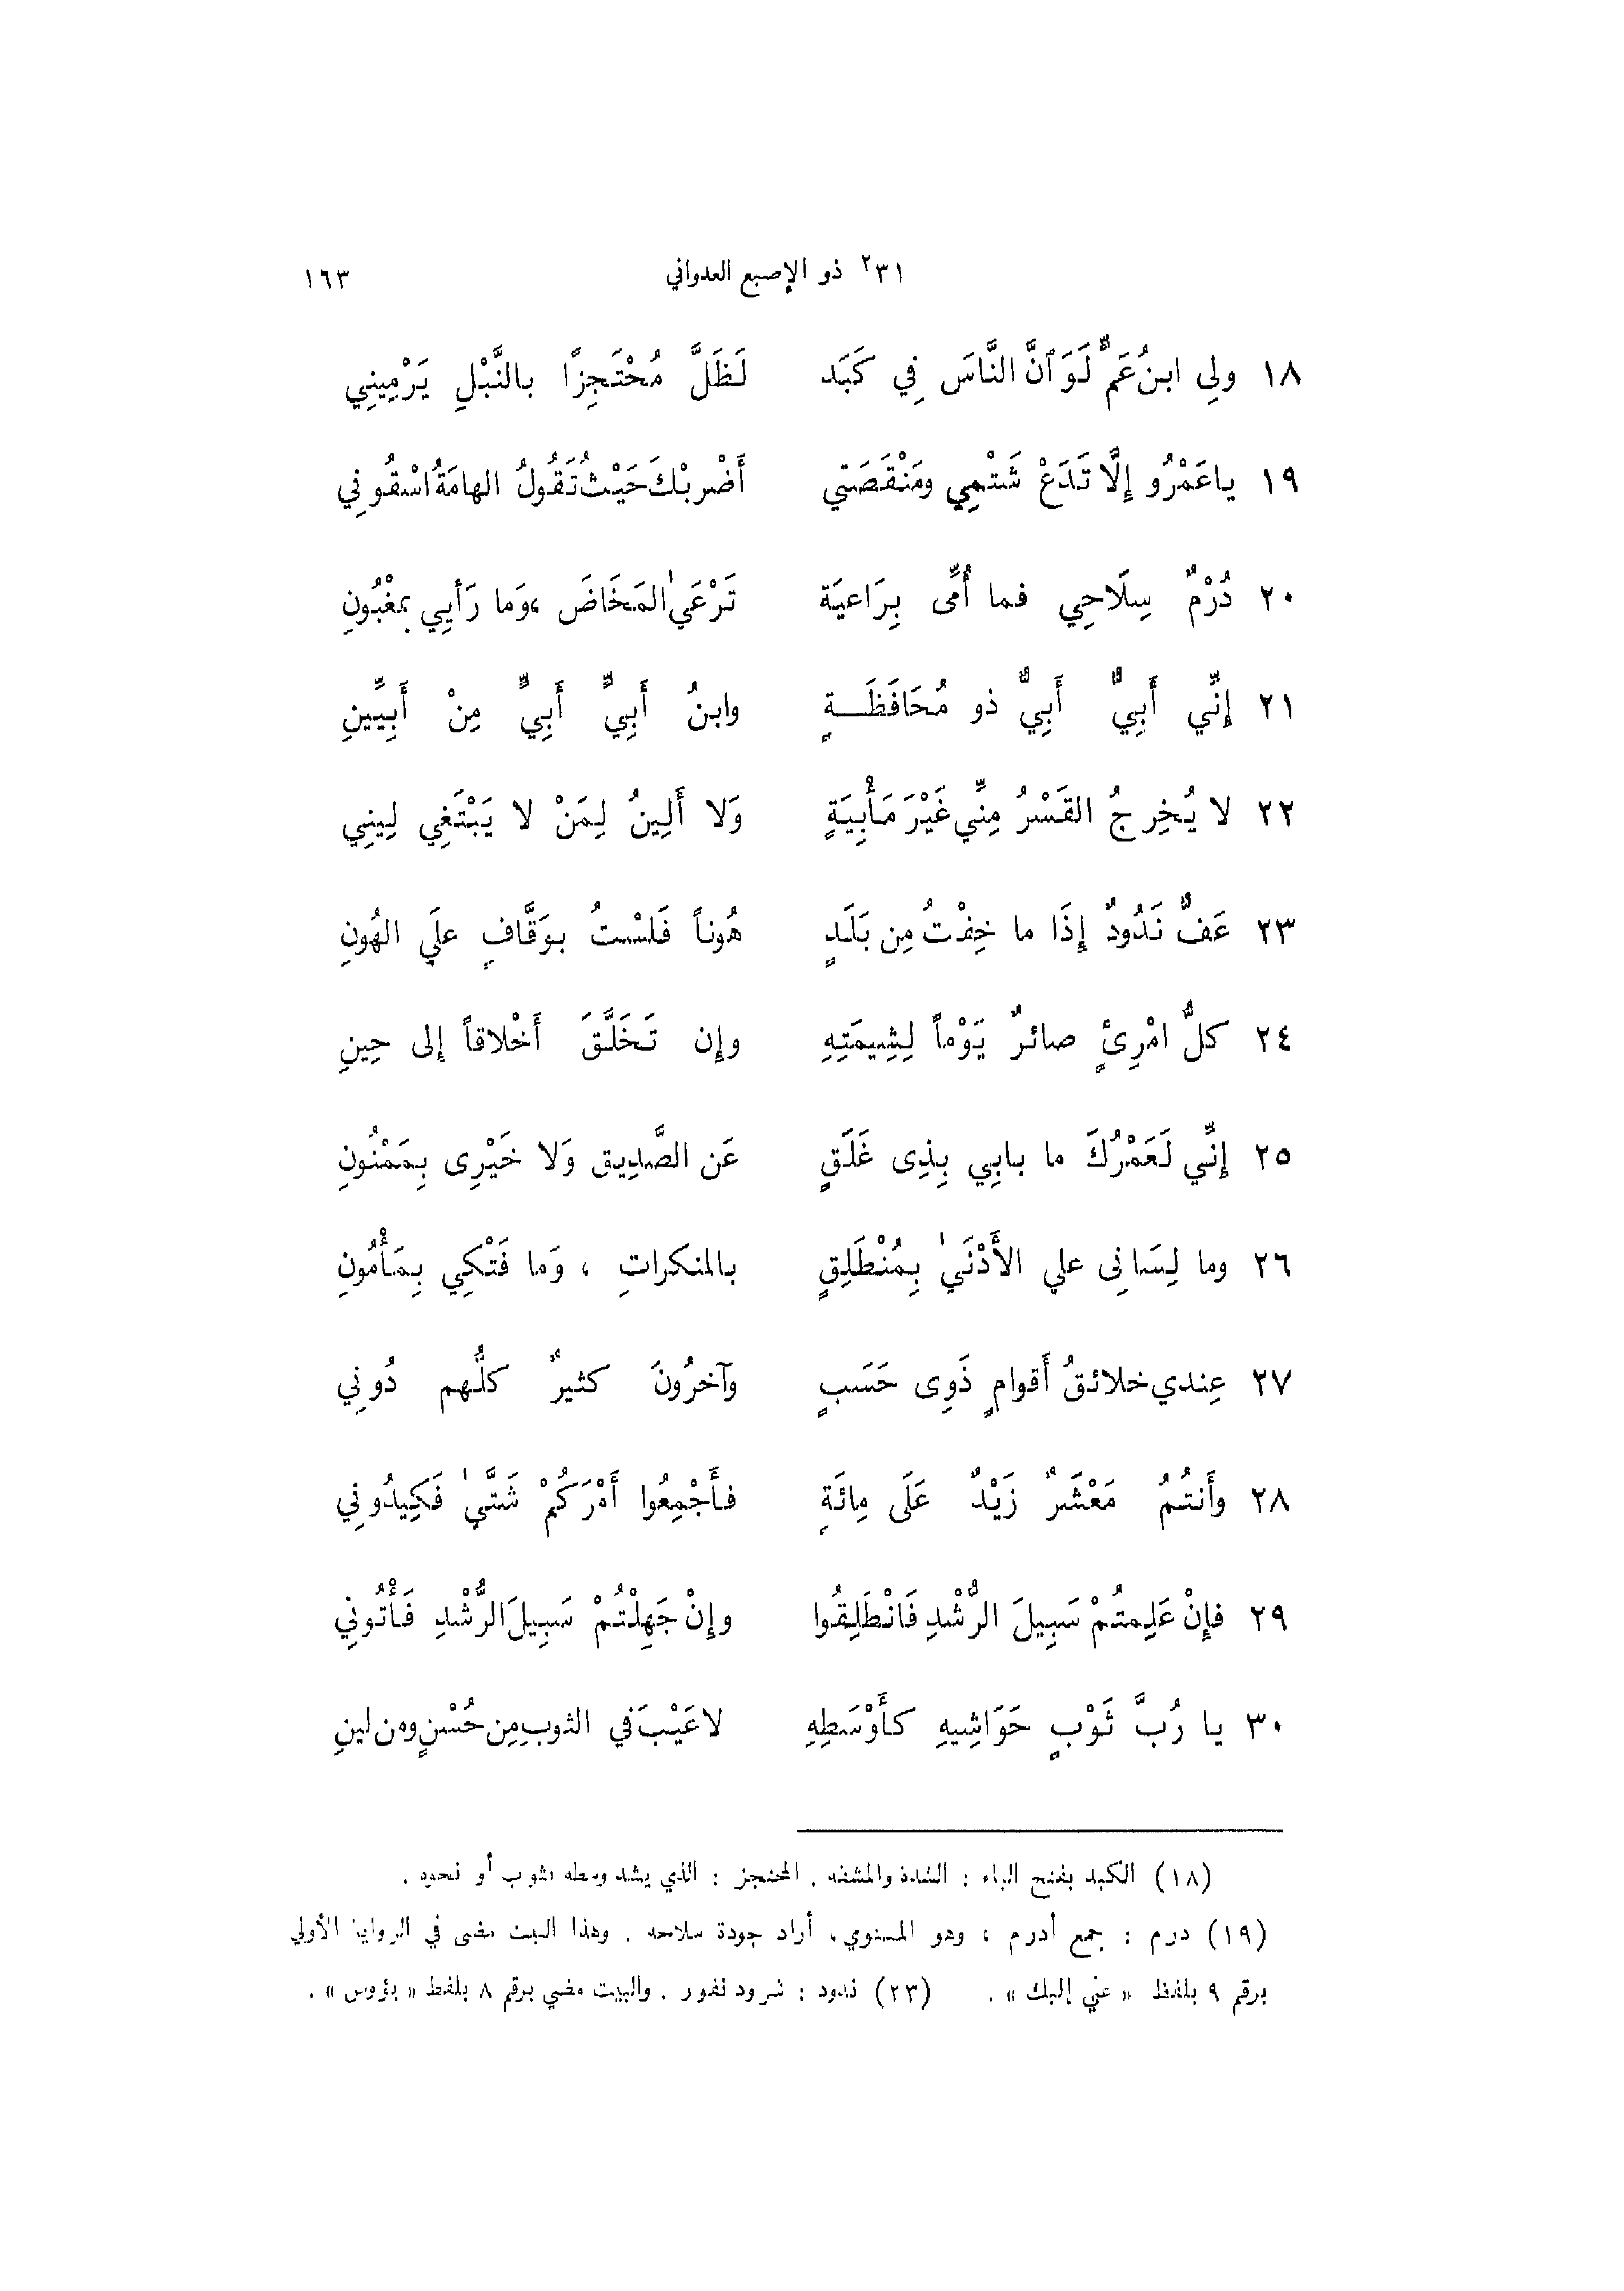 ٣١ ٢ ذو الإصبع العدواني ١٦٣
١٨ ولِي ابنُ عَمٍّ لَوَ ٱنَّ النَّاسَ فِي كَبَد لَظَلَّ مُحْتَجِزًا بالنَّبْلِ يَرْمِينِي
١٩ يا عَمْرُو إِلَّا تَدَعْ شَتْمِي ومَنْقَصَتِي أَضْرِبْكَ حَيْثُ تَقُولُ الهامَةُ اسْقُونِي
٢٠ دُرْمٌ سِلَاحِي فما أُمِّى بِرَاعيَة تَرْعَىٰ المَخَاضَ ، وَما رَأيِي بمغْبُونِ
٢١ إِنِّي أَبِيٌّ أَبِيٌّ ذو مُحَافَظَـــةٍ وابنُ أَبِيٍّ أَبِيٍّ مِنْ أَبِيِّينِ
٢٢ لا يُخرِجُ القَسْرُ مِنِّي غَيْرَ مَأْبِيَةٍ وَلا أَلِينُ لِمَنْ لا يَبْتَغِي لِينِي
٢٣ عَفٌّ نَدُودٌ إِذَا ما خِفْتُ مِن بَلَدٍ هُوناً فَلسْتُ بوَقَّافٍ علَى الهُونِ
٢٤ كلُّ امْرِئٍ صائرٌ يَوْماً لِشِيمَتِهِ وإِن تَخَلَّقَ أَخْلاقاً إلى حِينِ
٢٥ إِنِّي لَعَمْرُكَ ما بابِي بِذِى غَلَقٍ عَن الصَّدِيق وَلا خَيْرِى بِمَمْنُونِ
٢٦ وما لِسَانِى علي الأَدْنَىٰ بِمُنْطَلِقٍ بالمنكراتِ ، وَما فَتْكِي بِمَأْمُونِ
٢٧ عِندي خلائقُ أَقوامٍ ذَوِى حَسَبٍ وآخرُونَ كثيرٌ كلُّهم دُونِي
٢٨ وأَنتُمُ مَعْشَرٌ زَيْدٌ عَلَى مِائَةٍ فأَجْمِعُوا أَمْرَكُمْ شَتَّىٰ فَكِيدُونِي
٢٩ فإِنْ عَلِمتُمْ سَبِيلَ الرُّشْدِ فَانْطَلِقُوا وإِنْ جَهِلْتُمْ سَبِيلَ الرُّشْدِ فَأْتُونِي
٣٠ يا رُبَّ ثَوْبٍ حَوَاشِيهِ كأَوْسَطِهِ لا عَيْبَ في الثوبِ مِن حُسْنٍ ومن لينِ
(١٨) الكبد بفتح الباء : الشدة والمشقة . المحتجز : الذي يشد وسطه بثوب أو نحوه .
(١٩) درم : جمع أدرم ، وهو المستوي ، أراد جودة سلاحه . وهذا البيت مضى في الرواية الأولي
برقم ٩ بلفظ « عني إليك » . (٢٣) ندود : شرود نفور . والبيت مضي برقم ٨ بلفظ « يؤوس » .